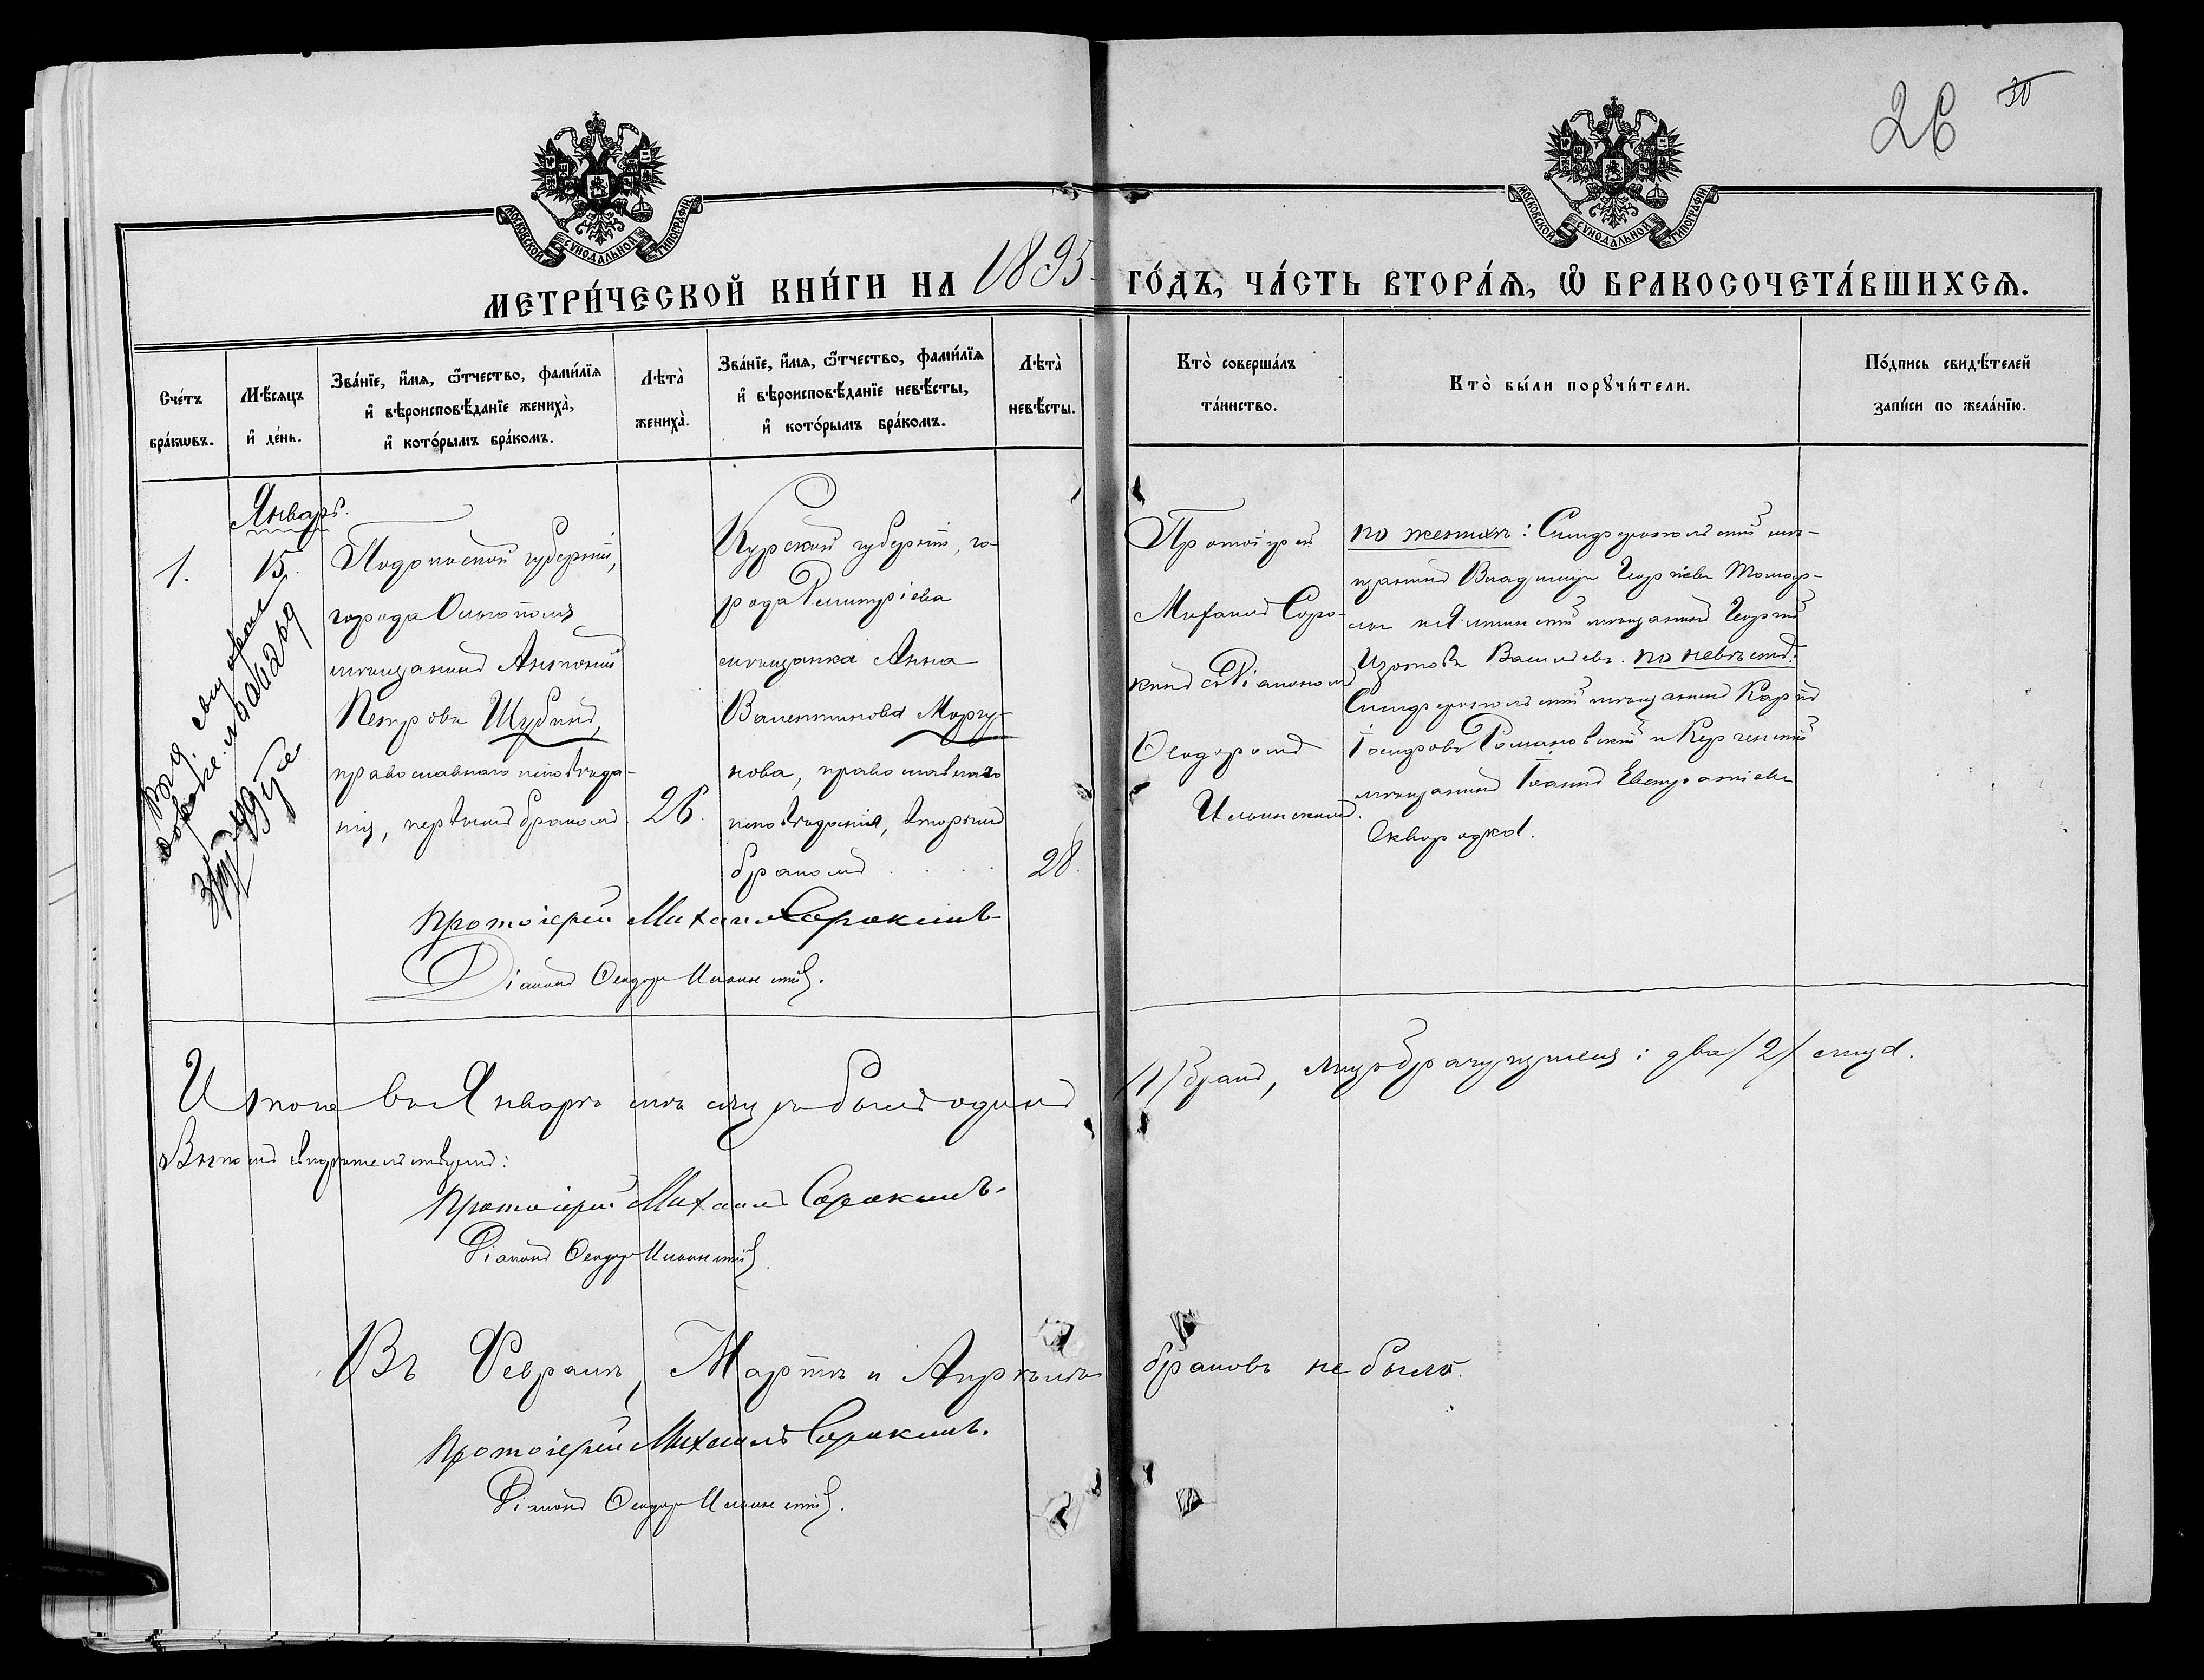 26 30
МОСКОВСКОЙ СУНОДАЛЬНОЙ ТИПОГРАФІИ
МОСКОВСКОЙ СУНОДАЛЬНОЙ ТИПОГРАФІИ
МЕТРИ́ЧЕСКОЙ КНИ́ГИ НА 1895 ГО́ДЪ, ЧА́СТЬ ВТОРА́Ѧ, Ѽ БРАКОСОЧЕТА́ВШИХСѦ.
Сче́тъ
бра́кѡвъ.
Мѣ́сяцъ
и҆ де́нь.
Зва́нїе, и҆́мѧ, ѻ҆́тчество, фами́лїѧ
и҆ вѣроисповѣ́данїе жениха̀,
и҆ кото́рымъ бра́комъ.
Лѣта̀
жениха̀.
Зва́нїе, и҆́мѧ, ѻ҆́тчество, фами́лїѧ
и҆ вѣроисповѣ́данїе невѣ́сты,
и҆ кото́рымъ бра́комъ.
Лѣта̀
невѣ́сты.
Кто̀ соверша́лъ
та́инство.
Кто̀ бы́ли порꙋчи́тели.
По́дпись свидѣ́телей
за́писи по жела́нїю.
1.
Январь.
15.
Подольской губерніи,
города Ольгополя
мѣщанинъ Антоній
Петровъ Шубинъ,
православнаго исповѣда-
нія, первымъ бракомъ.
26.
Курской губерніи, го-
рода Дмитріева
мѣщанка Анна
Валентинова Моргу-
нова, православнаго
исповѣданія, вторымъ
бракомъ
28.
Протоіерей
Михаилъ Соро-
кинъ съ Діакономъ
Ѳеодоромъ
Ильинскимъ.
по женихѣ: Симферопольскій мѣ-
щанинъ Владиміръ Георгіевъ
и Ялтинскій мѣщанинъ Георгій
Изотовъ Васильевъ. по невѣстѣ:
Симферопольскій мѣщанинъ Карпъ
Іосифовъ Романовскій и Керченскій
мѣщанинъ Іоаннъ Евстратіевъ
Протоіерей Михаилъ Сорокинъ
Діаконъ Ѳеодоръ Ильинскій.
Итого въ Январѣ мѣсяцѣ былъ одинъ /1/ бракъ, лицъ брачущихся: два /2/ лица.
Въ чемъ свидѣтельствуемъ:
Протоіерей Михаилъ Сорокинъ
Діаконъ Ѳеодоръ Ильинскій
Въ Февралѣ, Мартѣ и Апрѣлѣ браковъ не было.
Протоіерей Михаилъ Сорокинъ.
Діаконъ Ѳеодоръ Ильинскій.